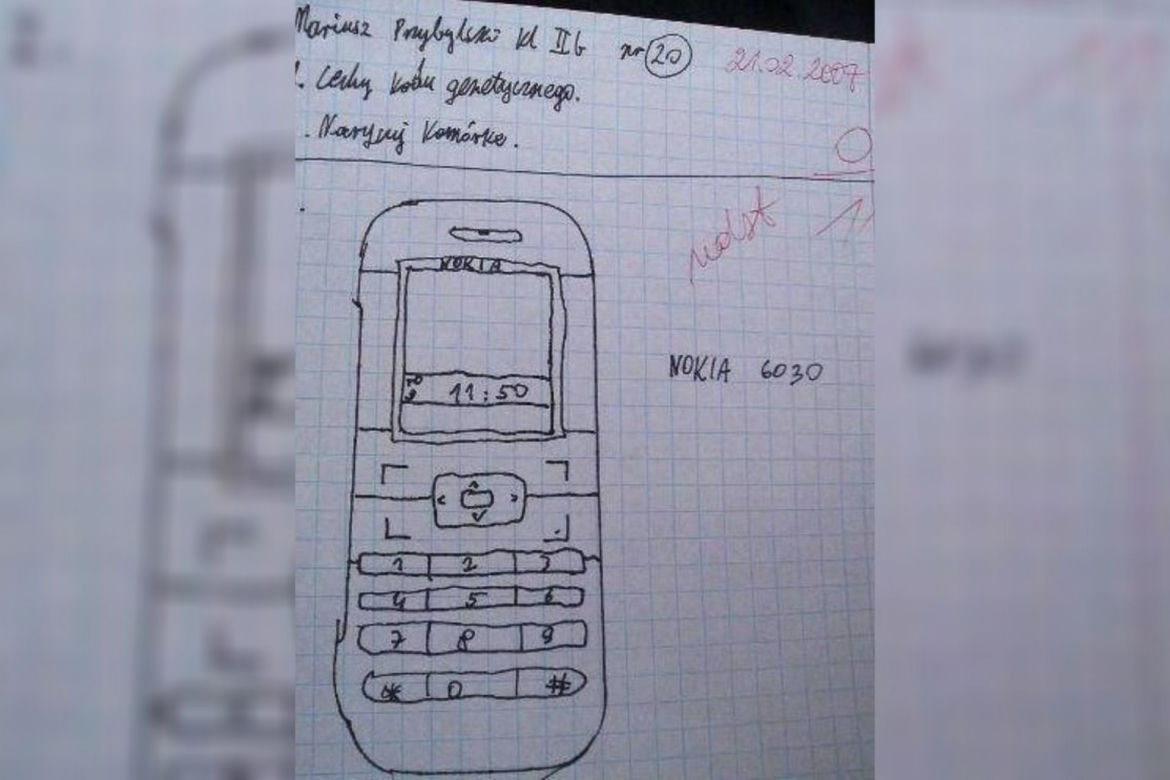 Mariusz Przybylski kl II b nr 20 21.02.2007
1. Cechy kodu genetycznego.
. Narysuj komórkę.
0
ndst 1
NOKIA
NOKIA 6030
11:50
1 2 3
4 5 6
7 8 9
* 0 #